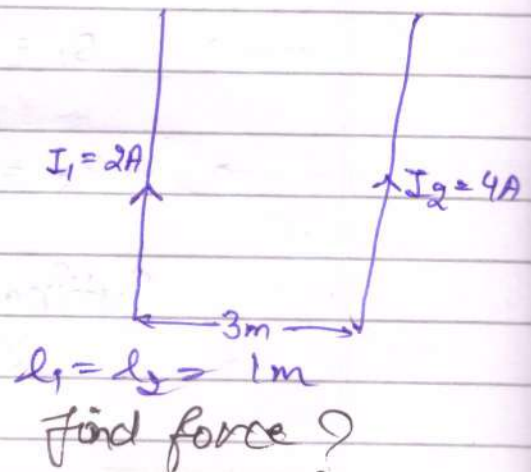 I₁ = 2A
I₂ = 4A
3m
l₁ = l₂ = 1m
Find force ?